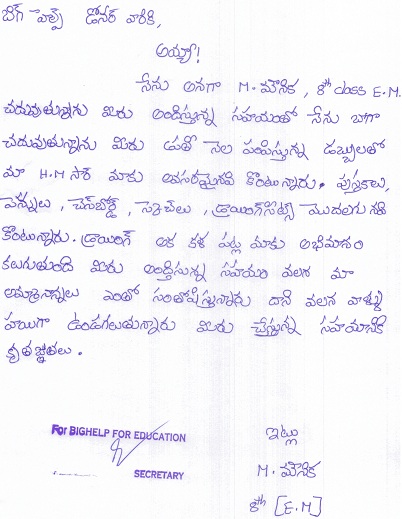 బిగ్ హెల్ప్ డోనర్ వారికి,
అయ్యా!
నేను అనగా M. మౌనిక, 8th class E.M.
చదువుతున్నాను మీరు అందిస్తున్న సహాయంతో నేను బాగా
చదువుతున్నాను మీరు ప్రతి నెల పంపిస్తున్న డబ్బులతో
మా H.M సార్ మాకు అవసరమైనవి కొంటున్నారు. పుస్తకాలు,
పెన్నులు, చెస్‌బోర్డ్, స్కెచ్‌లు, డ్రాయింగ్‌సీట్స్ మొదలగునవి
కొంటున్నారు. డ్రాయింగ్ అక కళ పట్ల మాకు అభిమానం
కలుగుతుంది మీరు అందిస్తున్న సహాయం వలన మా
అమ్మానాన్నలు ఎంతో సంతోషిస్తున్నారు దాని వలన వాళ్ళు
హాయిగా ఉండగలుతున్నారు మీరు చేస్తున్న సహయానికి
కృతజ్ఞతలు.
ఇట్లు
For BIGHELP FOR EDUCATION
SECRETARY
M. మౌనిక
8th [E.M]